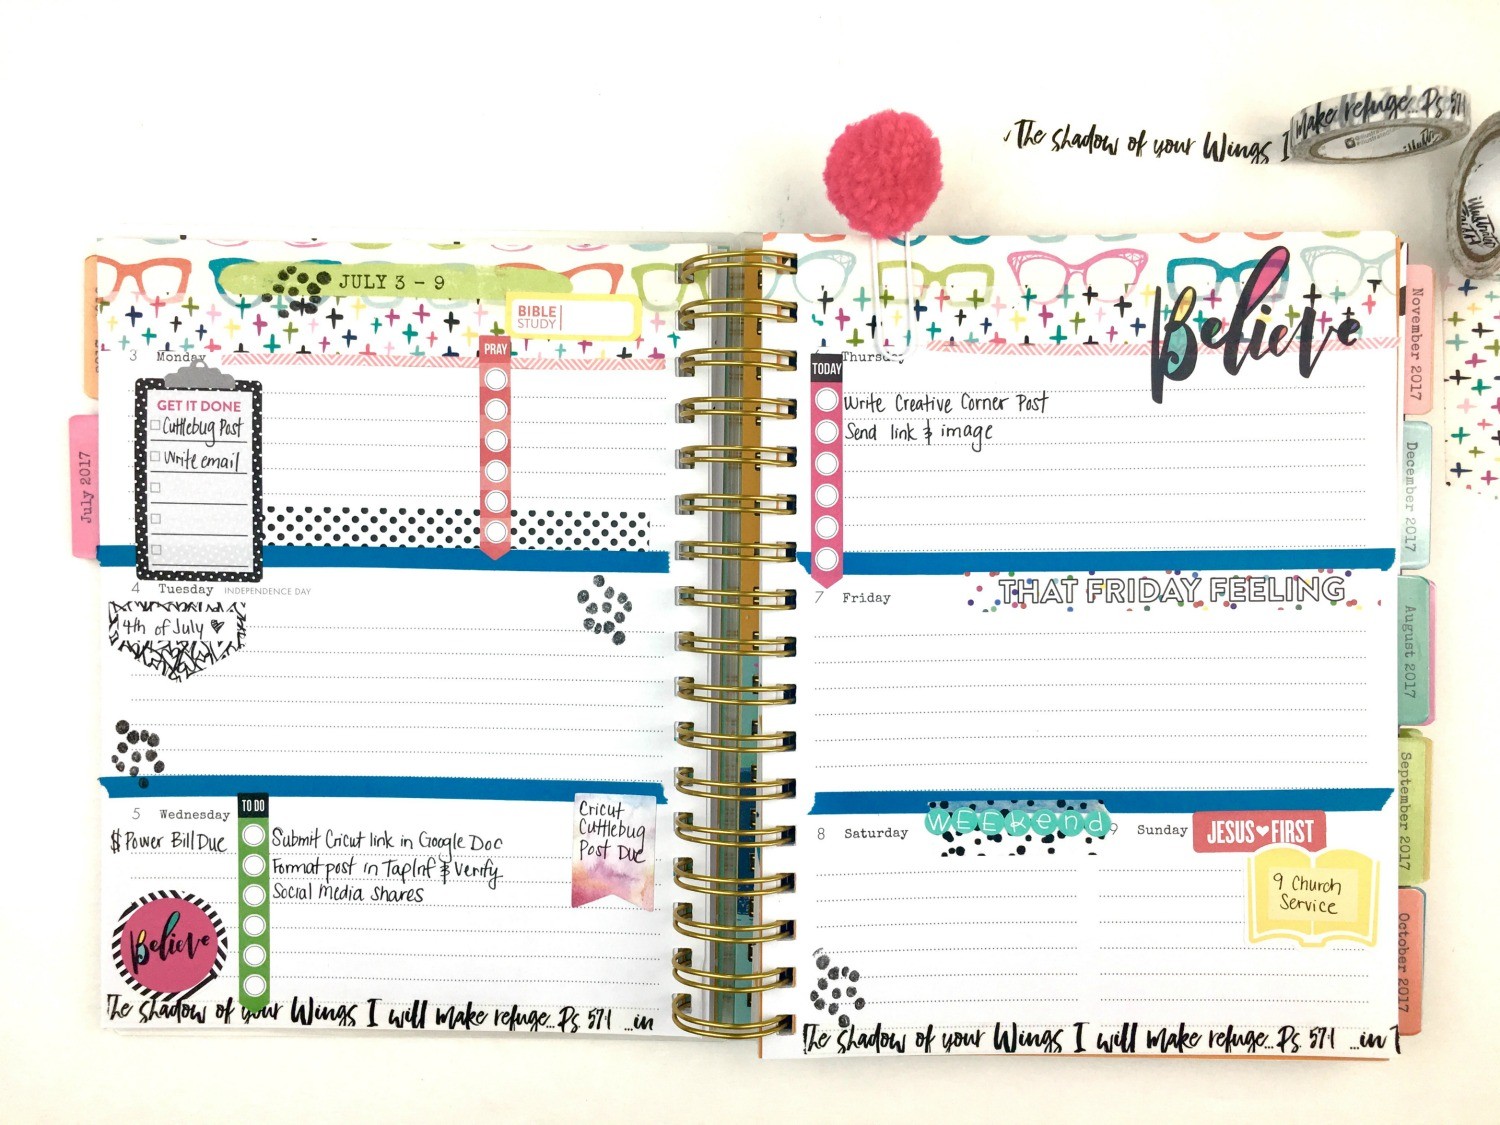 The shadow of your Wings I make refuge... Ps 57:1
JULY 3 - 9
BIBLE
STUDY
3 Monday
PRAY
GET IT DONE
Cuttlebug Post
Write email
July 2017
4 Tuesday INDEPENDENCE DAY
4th of July
5 Wednesday
$ Power Bill Due
TO DO
Submit Cricut link in Google Doc
Format post in TapInf & Verify
Social Media Shares
Cricut
Cuttlebug
Post Due
Believe
The shadow of your Wings I will make refuge... Ps 57:1 ...in
Believe
Thursday
TODAY
Write Creative Corner Post
Send link & image
7 Friday
THAT FRIDAY FEELING
8 Saturday
WEEKEND
9 Sunday
JESUS FIRST
9 Church
Service
The shadow of your Wings I will make refuge... Ps 57:1 ...in
November 2017
December 2017
August 2017
September 2017
October 2017